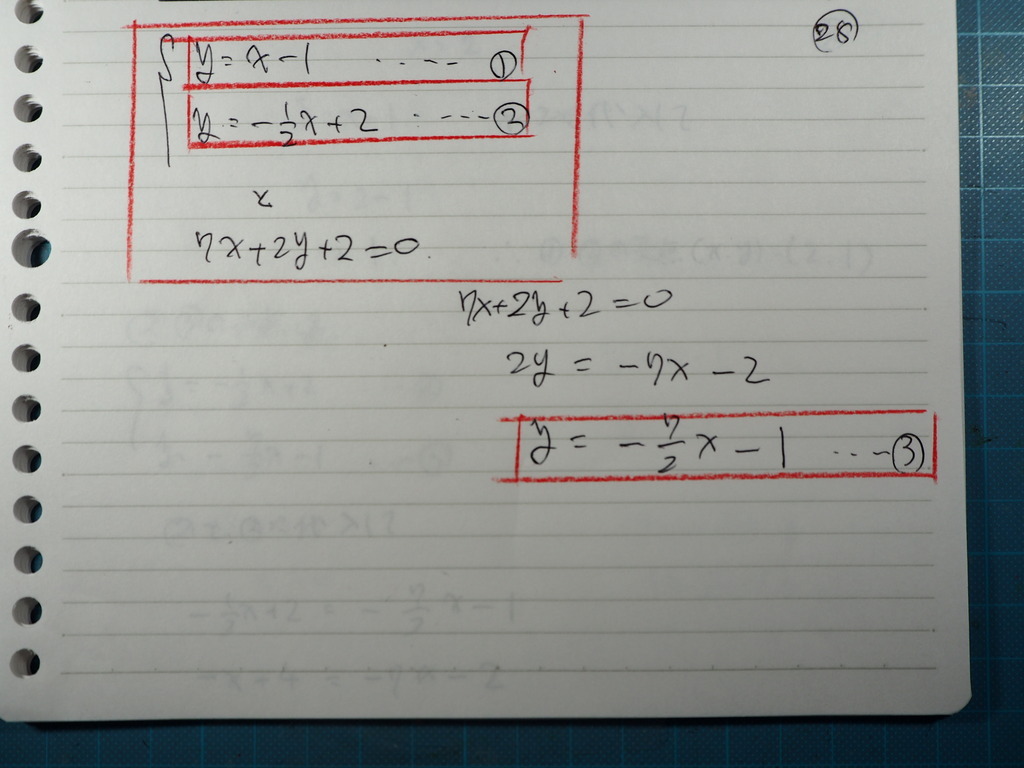 28
y = x - 1 ..... ①
y = -1/2x + 2 ..... ②
x
7x + 2y + 2 = 0.
7x + 2y + 2 = 0
2y = -7x - 2
y = -7/2 x - 1 ..... ③